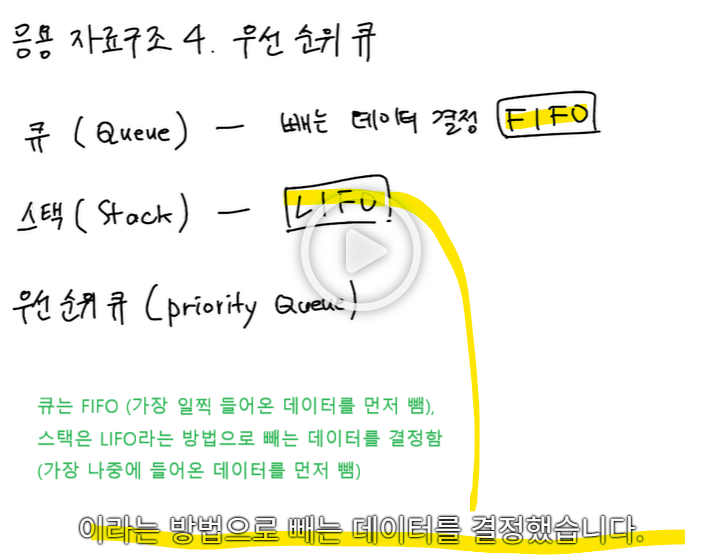 응용 자료구조 4. 우선순위 큐
큐 (Queue) — 빼는 데이터 결정 FIFO
스택 (Stack) — LIFO
우선순위 큐 (priority Queue)
큐는 FIFO (가장 일찍 들어온 데이터를 먼저 뺌),
스택은 LIFO라는 방법으로 빼는 데이터를 결정함
(가장 나중에 들어온 데이터를 먼저 뺌)
이라는 방법으로 빼는 데이터를 결정했습니다.